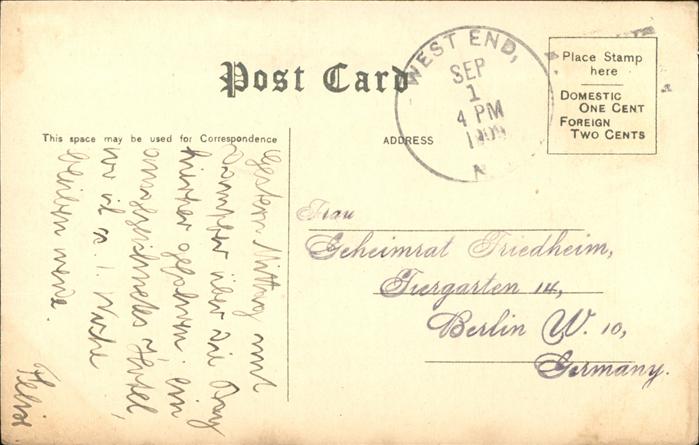 Post Card
WEST END,
SEP
1
4 PM
1909
N
Place Stamp
here
DOMESTIC
ONE CENT
FOREIGN
TWO CENTS
This space may be used for Correspondence
ADDRESS
Gestern Mittag mit
Dampfer über die Bay
hierher gefahren. Ein
ausgezeichnetes Hotel,
wo ich ca. 1 Woche
bleiben werde.
Felix
Frau
Geheimrat Friedheim,
Tiergarten 14,
Berlin W. 10,
Germany.